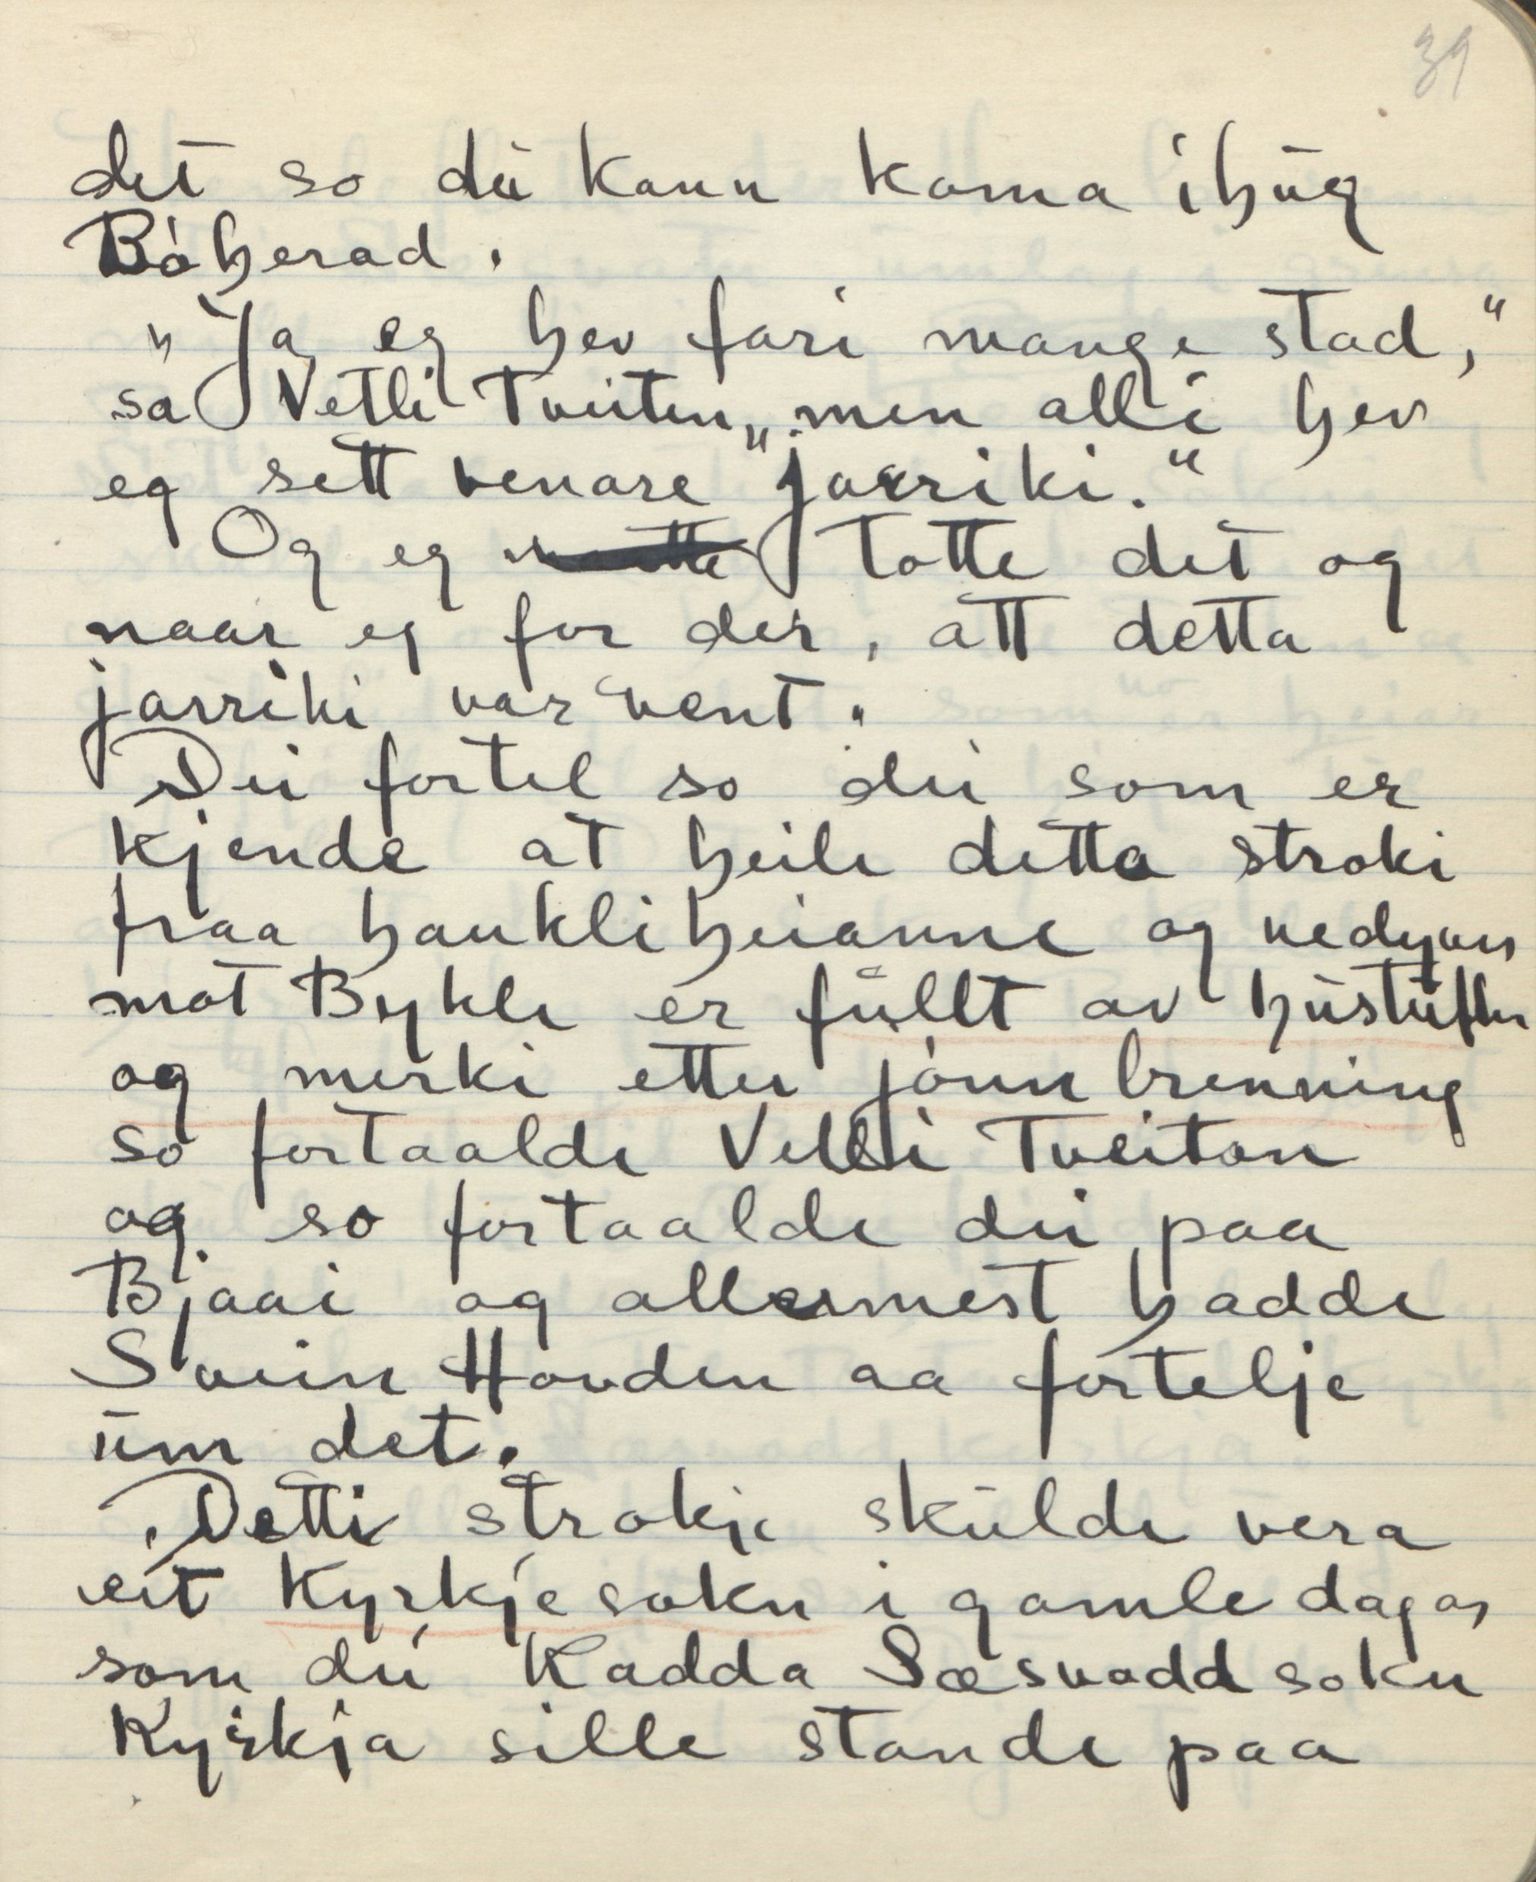 39
det so du kann koma ihug
Bøherad.
"Ja eg hev fari mange stad,"
sa Vetli Tveiten "men alli hev
eg sett venare jarriki."
Og eg totte det og
naar eg for der, att detta
jarriki var vent.
Dei fortel so dei som er
kjende at heile detta stroki
fraa haukliheianne og nedyver
mot Bykle er fullt av hustufter
og merki etter jónnbrenning
so fortaalde Vetli Tveitan
og so fortaalde dei paa
Bjaai og allermest hadde
Svein Hovden aa fortelje
um det.
Detti strokje skulde vera
eit Kyrkjesokn i gamle dagar
som dei Kadda Sæsvadd sokn
Kyrkja sille stande paa